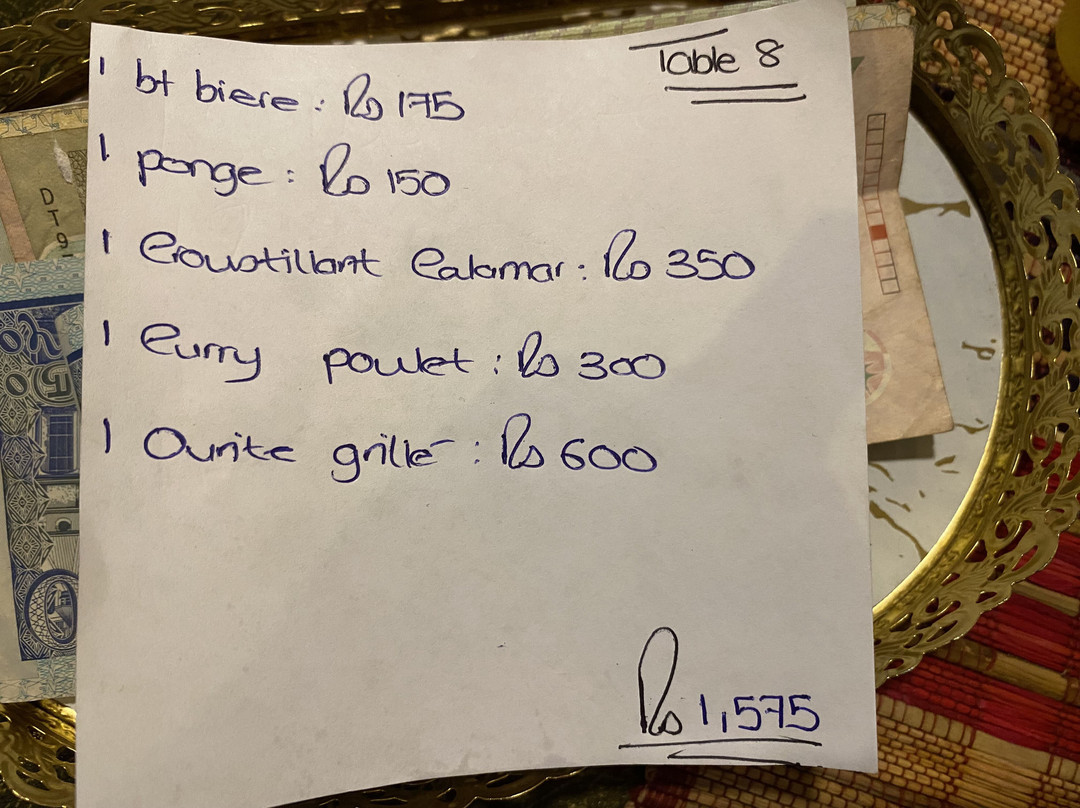 Table 8
1 bt biere : Rs 175
1 ponge : Rs 150
1 Croustillant Calamar : Rs 350
1 Curry poulet : Rs 300
1 Ourite grillé : Rs 600
Rs 1,575
DT9